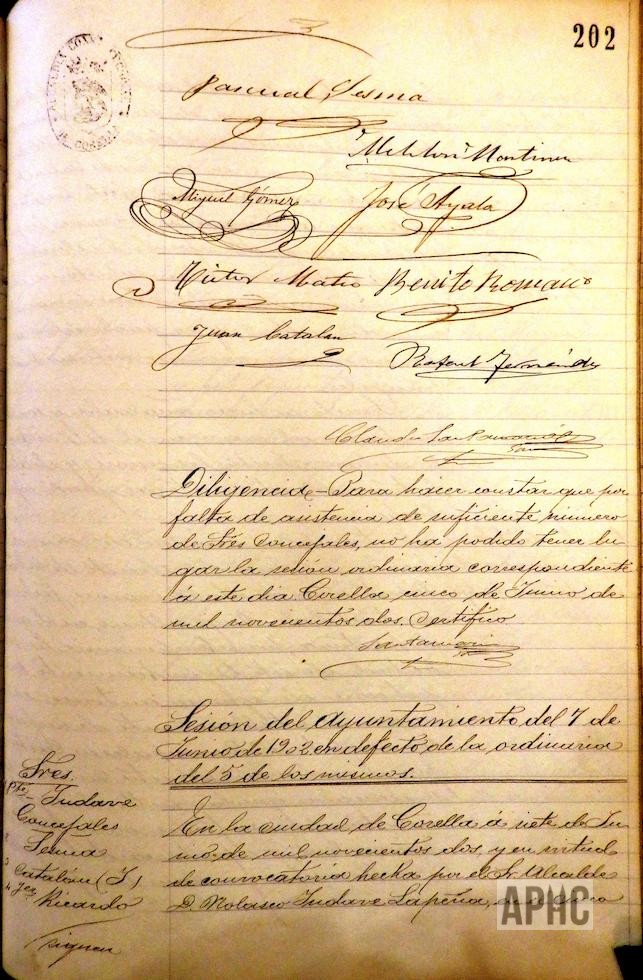 202
ALCALDIA CONST
CORELLA
Pascual Sesma
Meliton Martinez
Miguel Gómez
José Ayala
Victor Mateo
Benito Romano
Juan Catalan
Rafael Fernández
Claudio Santamaría
Diligencia - Para hacer constar que por
falta de asistencia de suficiente número
de Sres Concejales, no ha podido tener lu
gar la sesión ordinaria correspondiente
á este dia Corella cinco de Junio de
mil novecientos dos. Certifico
Santamaria
Sesión del Ayuntamiento del 7 de
Junio de 1902. en defecto de la ordinaria
del 5 de los mismos.
Sres.
Pte.
Tudave
Concejales
2 Sesma
3 Catalán (J)
4
Ricardo
siguen
En la ciudad de Corella á siete de Ju
nio de mil novecientos dos y en virtud
de convocatoria hecha por el Sr Alcalde
D. Nolasco Tudave Lapeña,
APHC